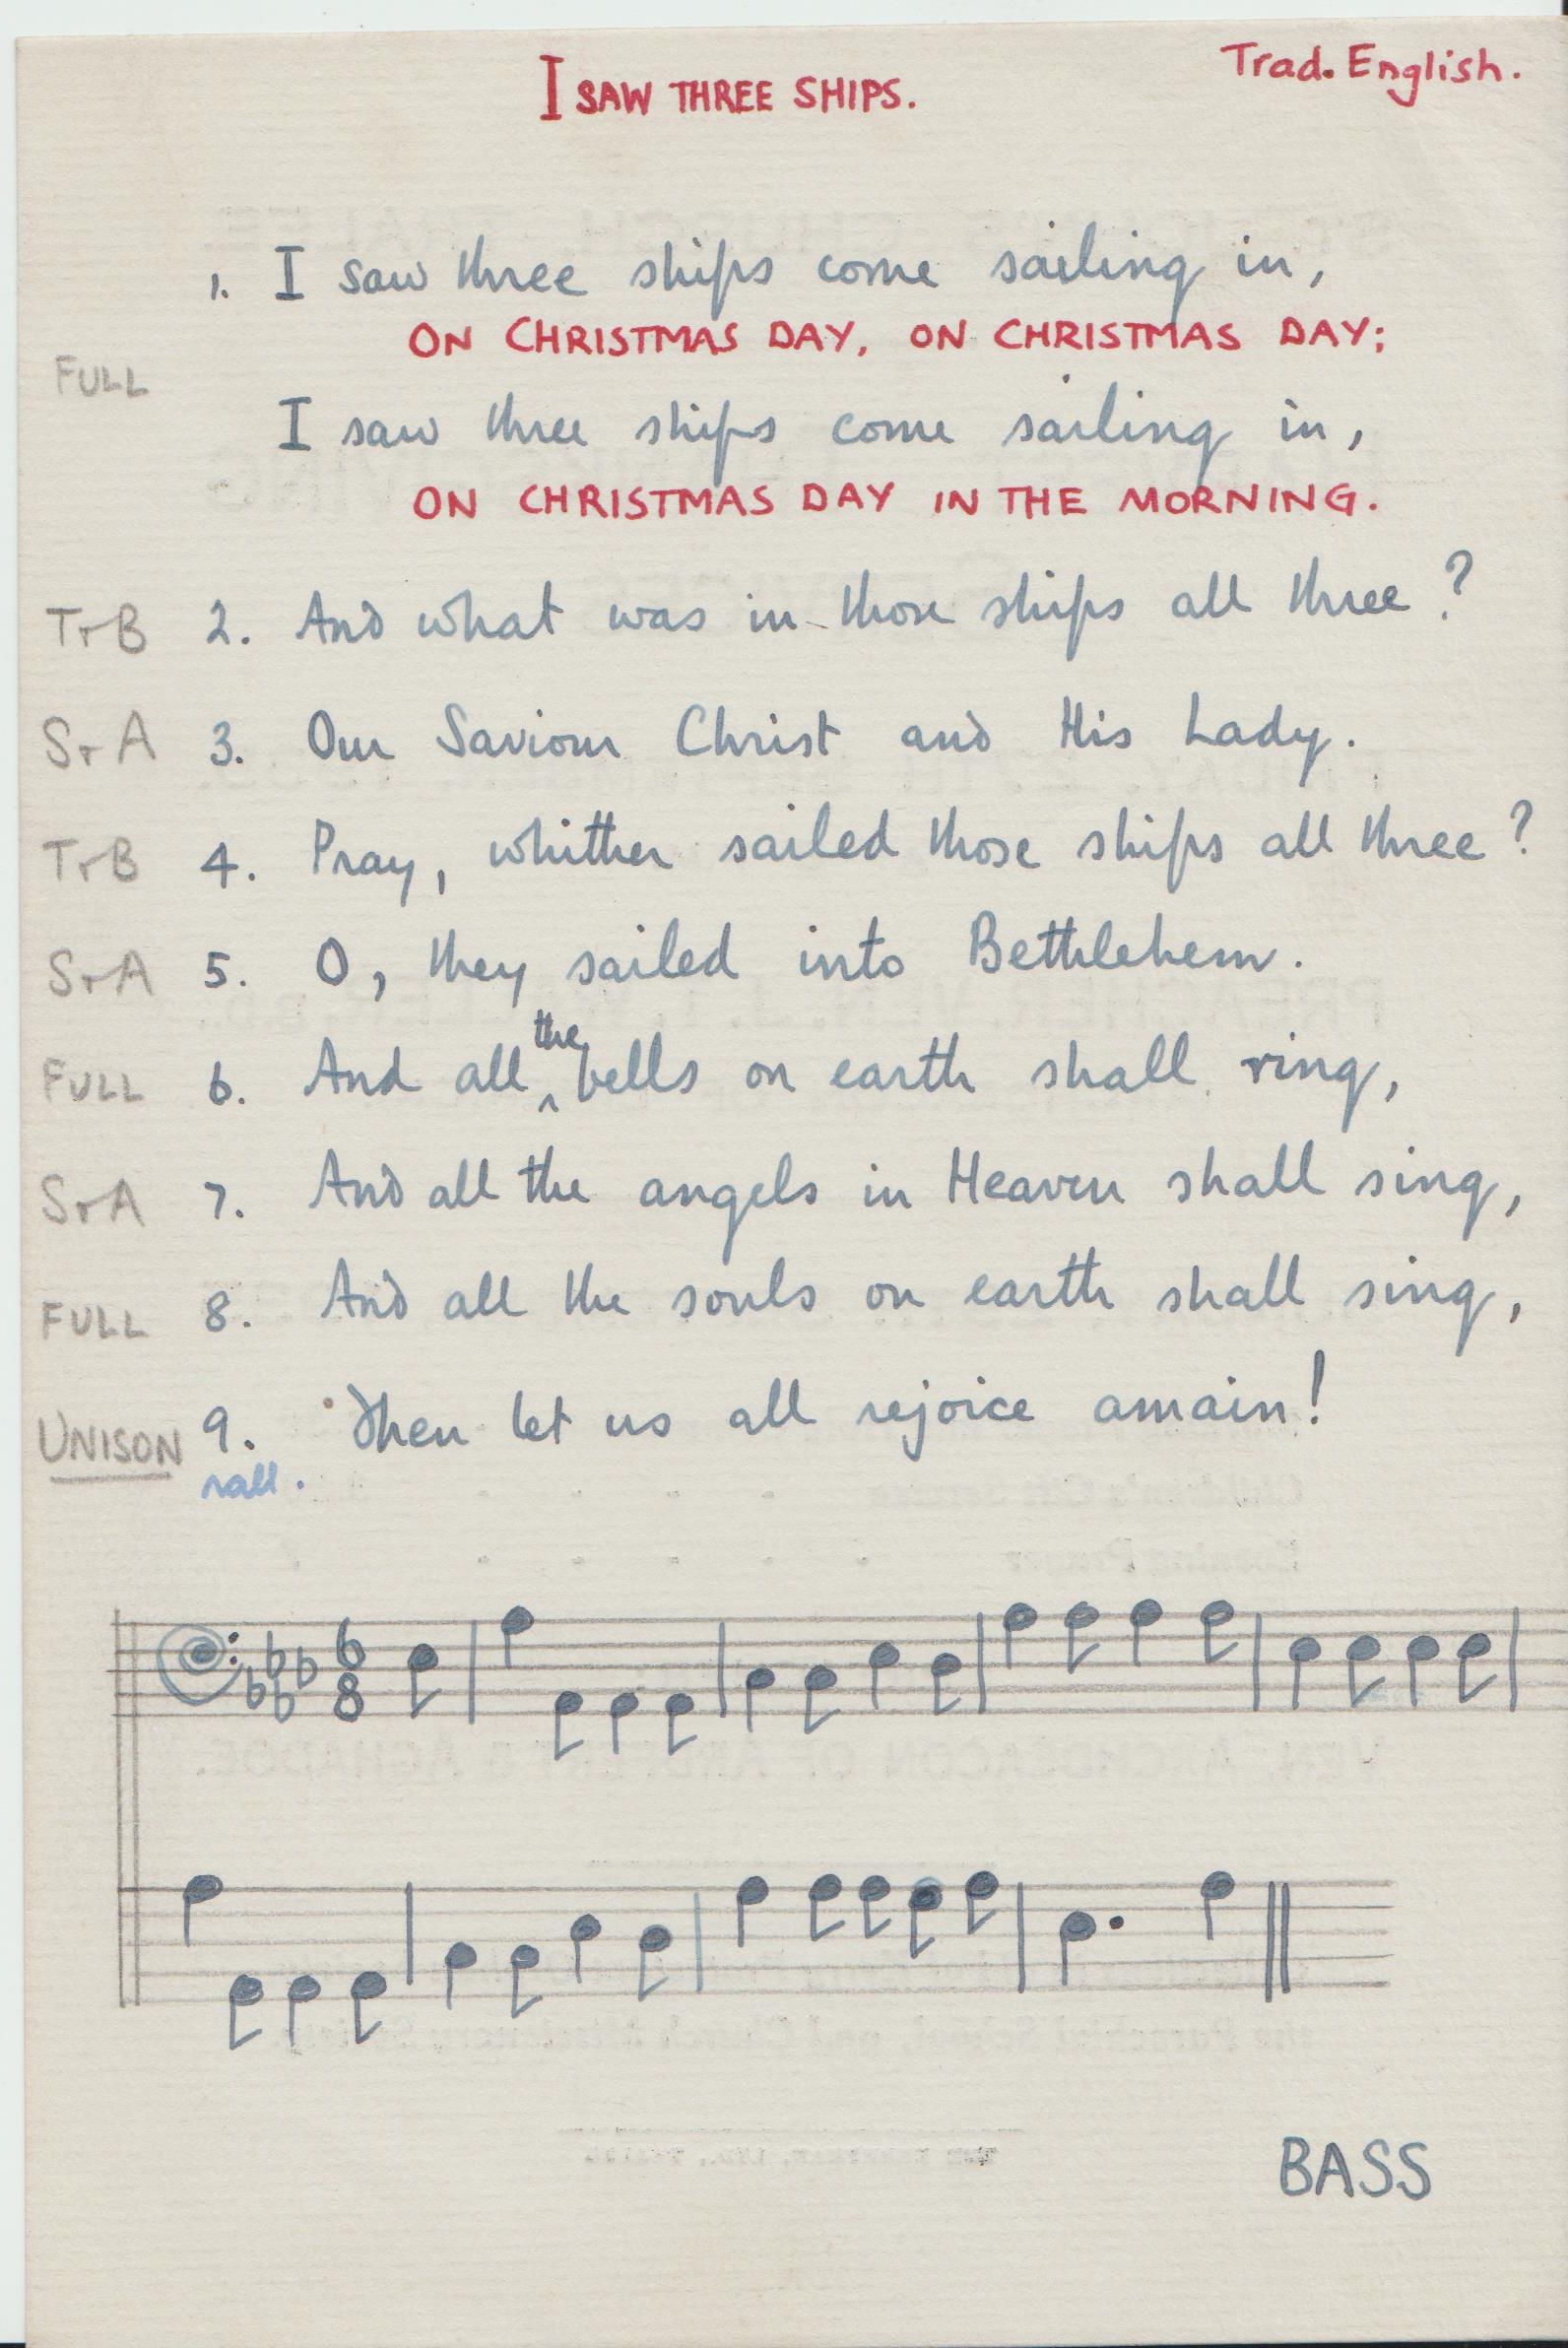 I SAW THREE SHIPS.
Trad. English.
1. I saw three ships come sailing in,
ON CHRISTMAS DAY, ON CHRISTMAS DAY;
FULL
I saw three ships come sailing in,
ON CHRISTMAS DAY IN THE MORNING.
T+B 2. And what was in those ships all three?
S+A 3. Our Saviour Christ and His Lady.
T+B 4. Pray, whither sailed those ships all three?
S+A 5. O, they sailed into Bethlehem.
FULL 6. And all the bells on earth shall ring,
S+A 7. And all the angels in Heaven shall sing,
FULL 8. And all the souls on earth shall sing,
UNISON 9. Then let us all rejoice amain!
rall.
6
8
BASS